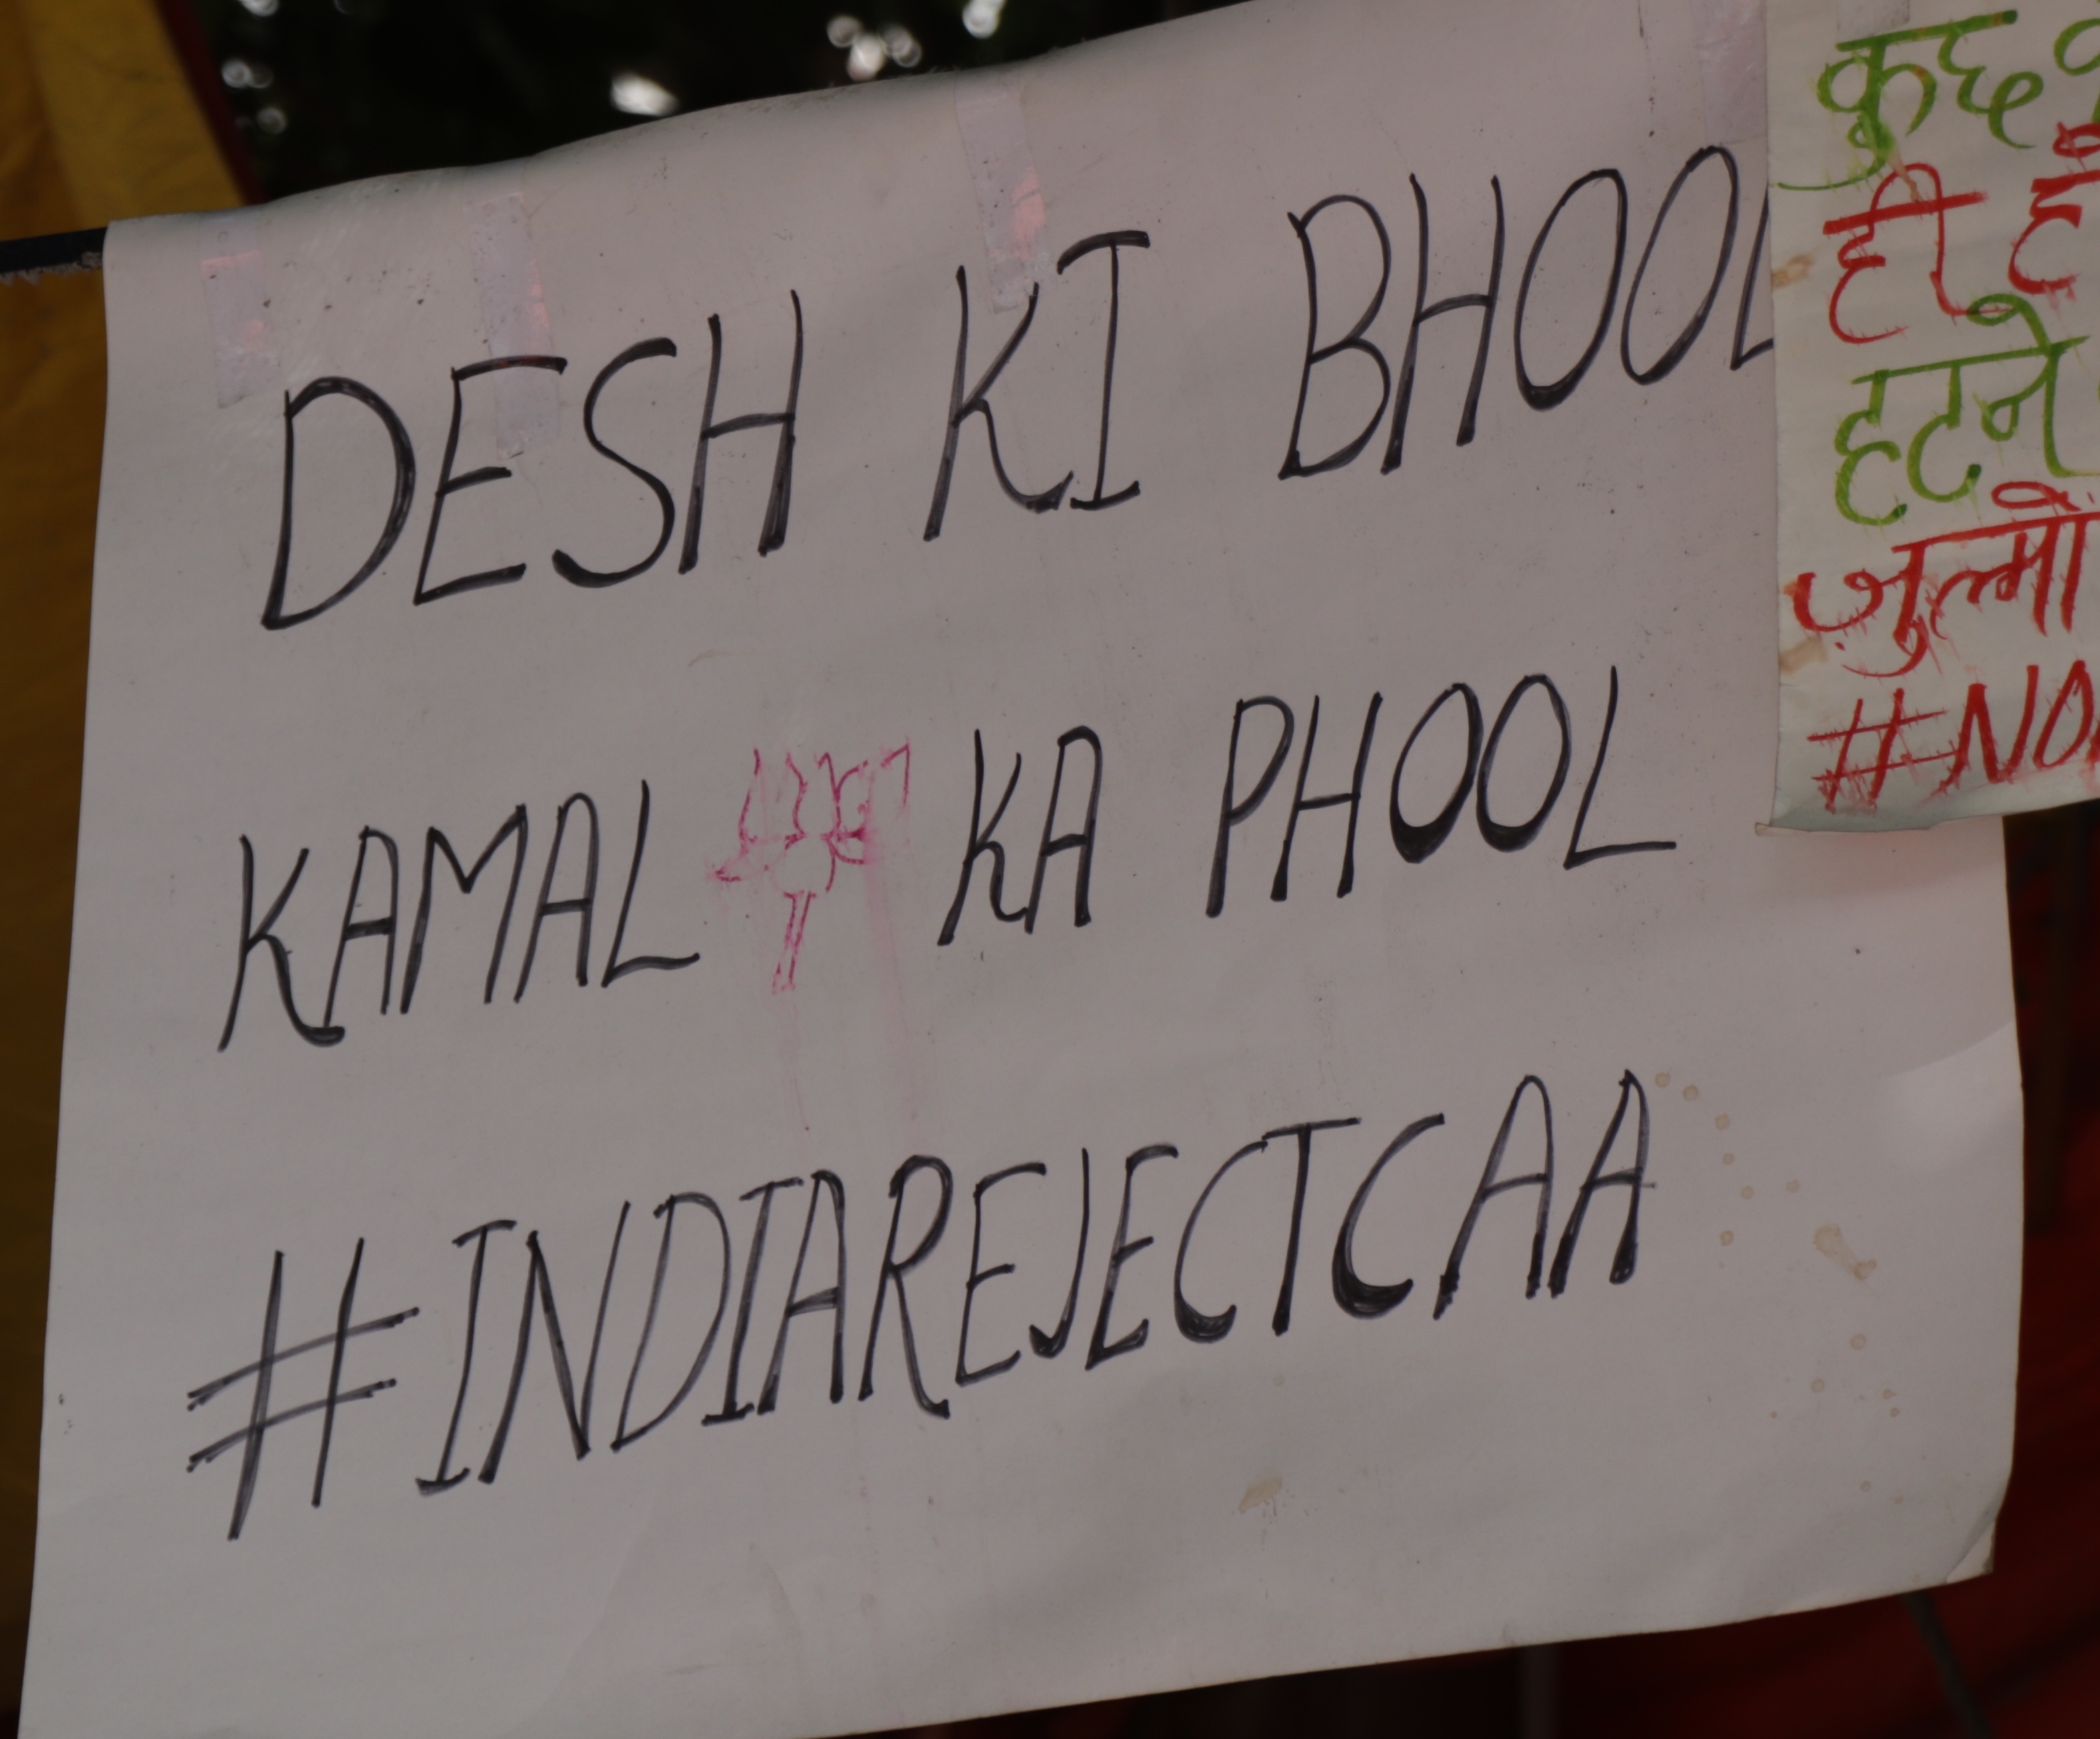 DESH KI BHOOL
KAMAL KA PHOOL
#INDIAREJECTCAA
कुछ
ही
हटने
जुल्मों
#NO